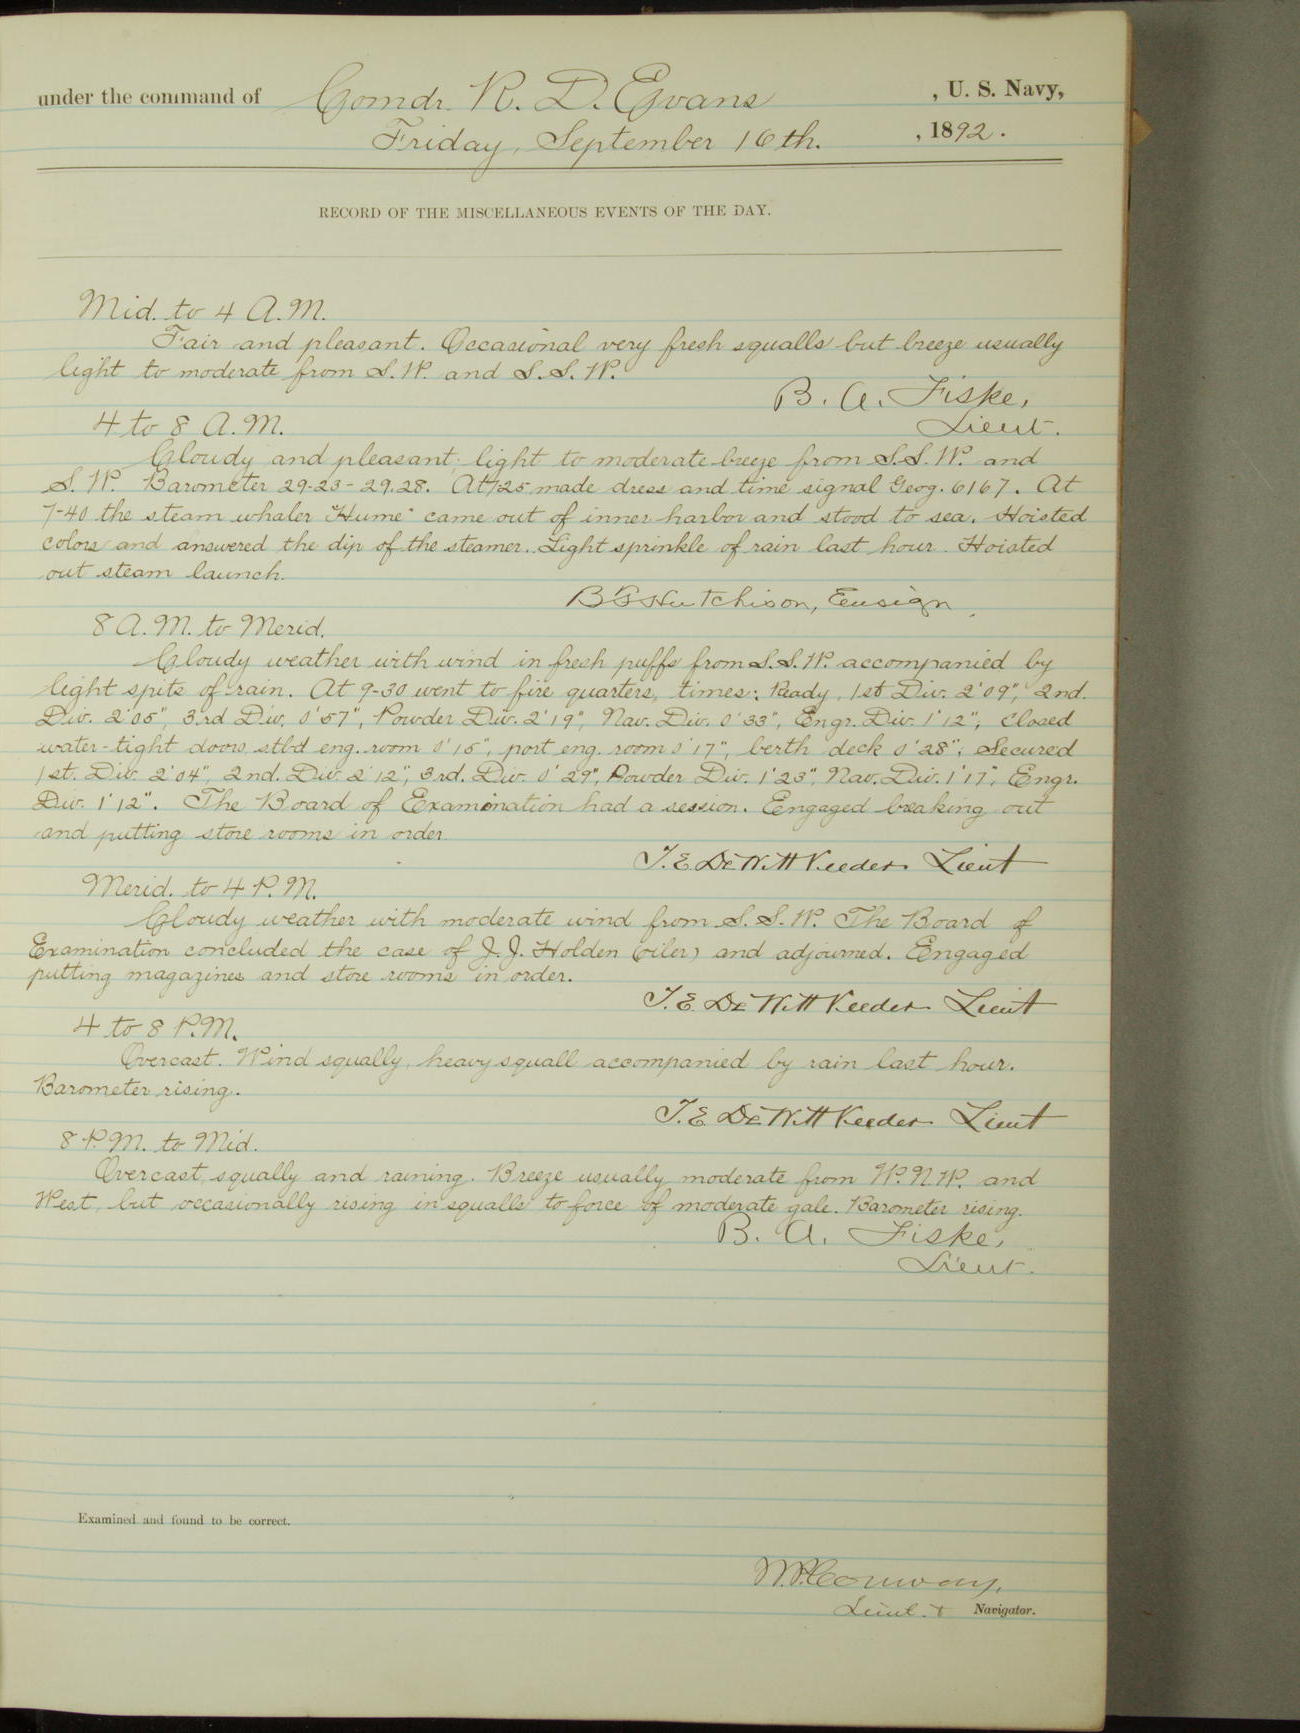 under the command of Comdr. R. D. Evans, U. S. Navy,
Friday, September 16th. , 1892.
RECORD OF THE MISCELLANEOUS EVENTS OF THE DAY.
Mid. to 4 A.M.
Fair and pleasant. Occasional very fresh squalls but breeze usually
light to moderate from S.W. and S.S.W.
B. A. Fiske,
Lieut.
4 to 8 A.M.
Cloudy and pleasant; light to moderate breeze from S.S.W. and
S.W. Barometer 29-23-29.28. At 7-25 made dress and time signal Geog. 6167. At
7-40 the steam whaler "Hume" came out of inner harbor and stood to sea. Hoisted
colors and answered the dip of the steamer. Light sprinkle of rain last hour. Hoisted
out steam launch.
Hutchison, Ensign
8 A.M. to Merid.
Cloudy weather with wind in fresh puffs from S.S.W. accompanied by
light spits of rain. At 9-30 went to fire quarters, times: Ready, 1st Div. 2'09", 2nd.
Div. 2'05", 3rd Div. 0'57", Powder Div. 2'19", Nav. Div. 0'33", Engr. Div. 1'12"; Closed
water-tight doors, stb'd eng. room 0'15", port eng. room 0'17", berth deck 0'28"; Secured
1st. Div. 2'04", 2nd. Div. 2'12", 3rd. Div. 0'29", Powder Div. 1'23", Nav. Div. 1'17", Engr.
Div. 1'12". The Board of Examination had a session. Engaged breaking out
and putting store rooms in order.
T. E. DeWitt Veeder Lieut
Merid. to 4 P.M.
Cloudy weather with moderate wind from S.S.W. The Board of
Examination concluded the case of J. J. Holden (oiler) and adjourned. Engaged
putting magazines and store rooms in order.
T. E. DeWitt Veeder Lieut
4 to 8 P.M.
Overcast. Wind squally, heavy squall accompanied by rain last hour.
Barometer rising.
T. E. DeWitt Veeder Lieut
8 P.M. to Mid.
Overcast, squally and raining. Breeze usually moderate from W.N.W. and
West, but occasionally rising in squalls to force of moderate gale. Barometer rising.
B. A. Fiske,
Lieut.
Examined and found to be correct.
Conway,
Lieut. & Navigator.